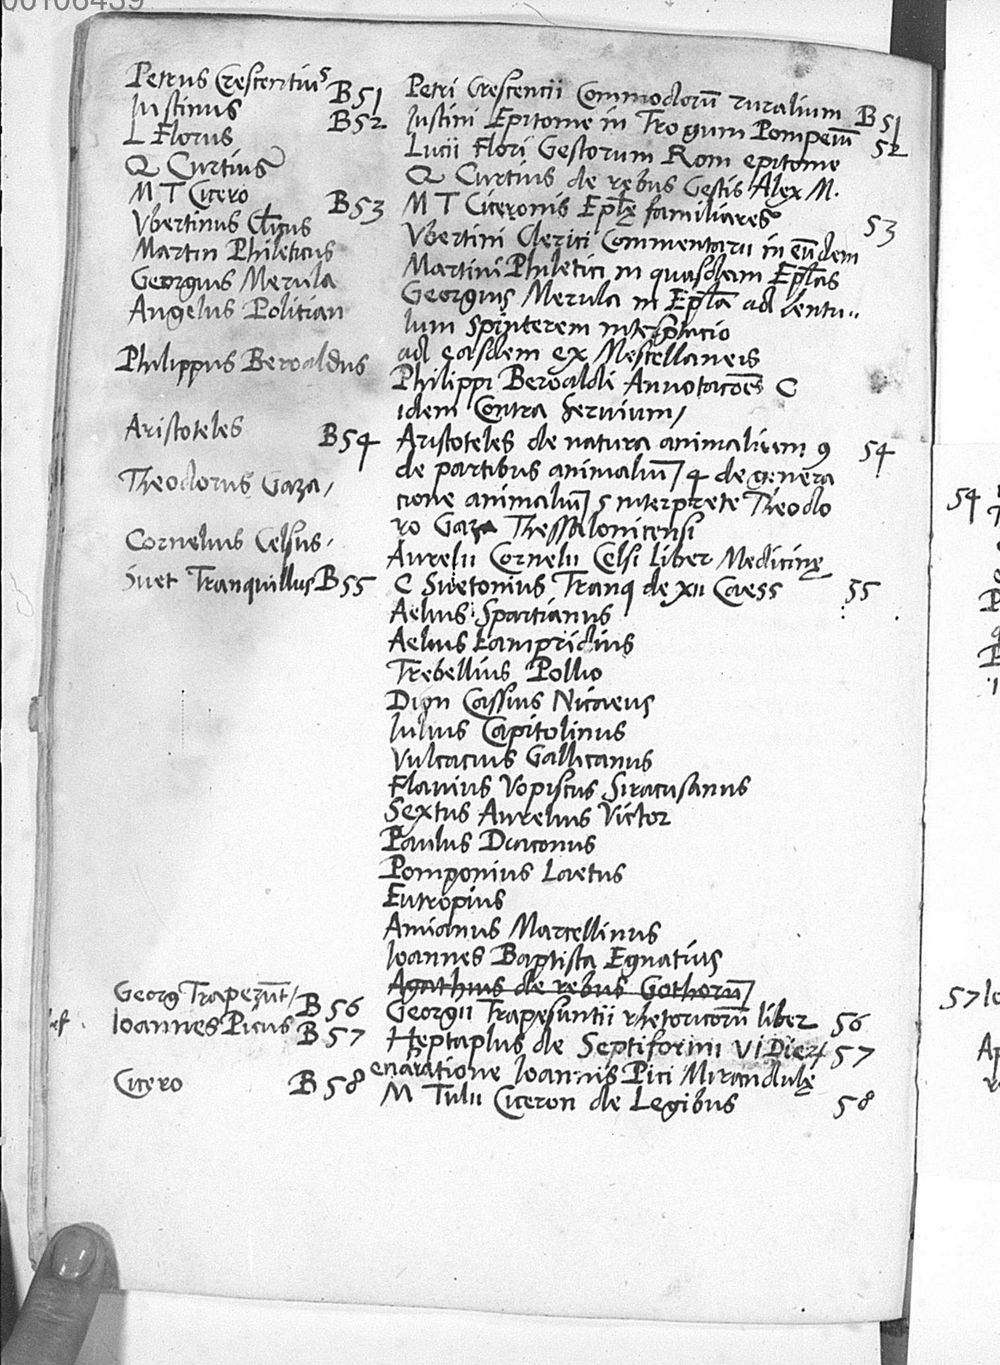 00106439
Petrus Crescentius B51 Petri Crescencii Commodorū ruralium B51
Iustinus B52 Iustini Epitome in Trogum Pompeiū 52
L Florus Lucii Flori Gestorum Rom epitome
Q Curtius Q Curtius de rebus Gestis Alex M.
M T Cicero B53 M T Ciceronis Epłę familiares 53
Vbertinus Cl̄icus Vbertini Clerici Commentarii in eūdem
Martin Phileticus Martini Philetici in quasdam Epłas
Georgius Merula Georgius Merula in Epłā ad lentu..
Angelus Politian lum spinterem
ad easdem ex Mescellaneis
Philippus Beroaldus Philippi Beroaldi Annotacōes C
idem Contra servium/
Aristoteles B54 Aristoteles de natura animalium 9 54
de partibus animaliū/ 4 de genera
Theodorus Gaza/ cione animaliū/ 5 interprete Theodo
ro Gaza Thessalonicensi
Cornelius Celsus. Aurelii Cornelii Celsi liber Medicinę
Suet Tranquillus B55 C Suetonius Tranq de xii Caess 55
Aelius Spartianus
Aelius Lampridius
Trebellius Pollio
Dion Cassius Nicaeus
Iulius Capitolinus
Vulcacius Gallicanus
Flavius Vopiscus Siracusanus
Sextus Aurelius Victor
Paulus Diaconus
Pomponius Laetus
Eutropius
Amianus Marcellinus
Ioannes Baptista Egnatius
Agathius de rebus Gothorū/
Georg Trapezūt/ B56 Georgii Trapesuntii rhetoricorū liber 56
Ioannes Picus B57 Heptaplus de Septiformi VI Dier/ 57
enarratione Ioannis Pici Mirandulę
Cicero B58 M Tulii Ciceron de Legibus 58
54
57